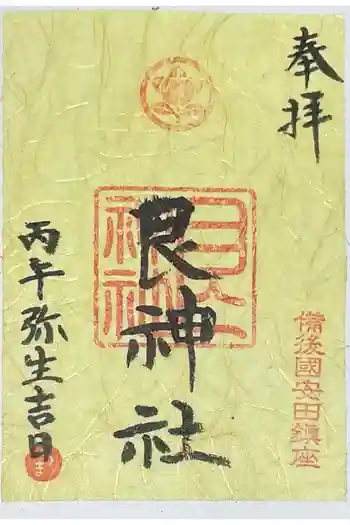 奉拝
備後國安田鎮座
艮神社
艮神社
丙午弥生吉日
ま